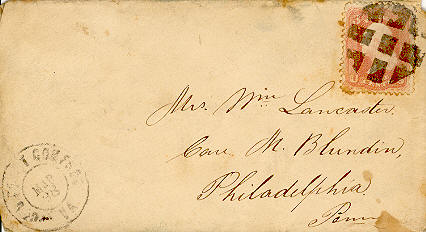 Mrs. Wm Lancaster.
Care M. Blundin,
Philadelphia
Penn
MAR
VA